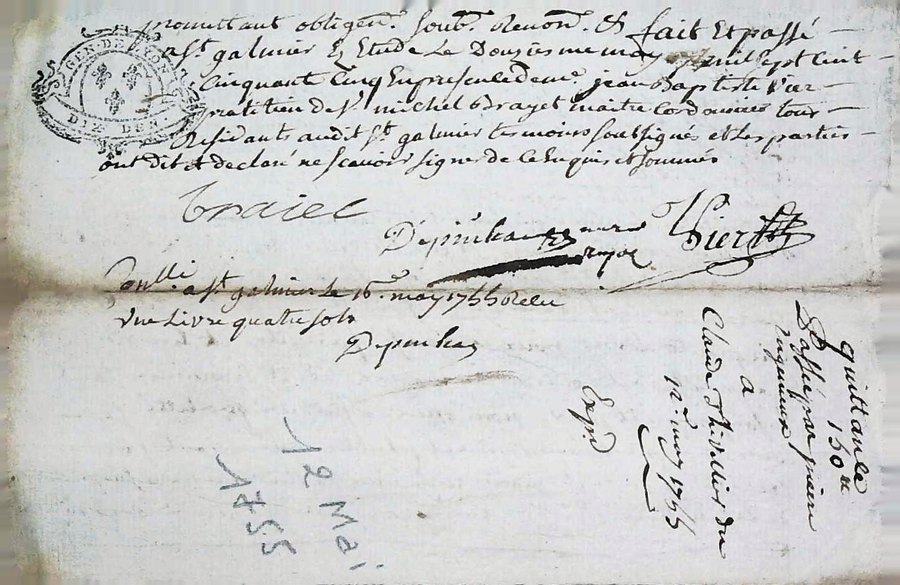 promettant obligen. soub. Renon. & fait Et passé
a St. galmier Ez Etude Le Douziesme may mil sept cent
Cinquante Cinq En presence de me. jean Baptiste
praticien de St michel & brayet maitre cordonnier tous
Residants audit St. galmier tesmoins soubsignés et Les parties
ont dit et declaré ne scavoir signer de ce Enquis et sommés
GEN. DE LYON
DIX DEN.
braiel
Depinhac
Thier
Conllé. a St galmier Le 16e. may 1755 Receu
Vne Livre quatre sols
Depinhac
quittance
150 #
Passée par pierre
a
Claude Thivillier du
12e. may 1755
Expé
12 Mai
1755